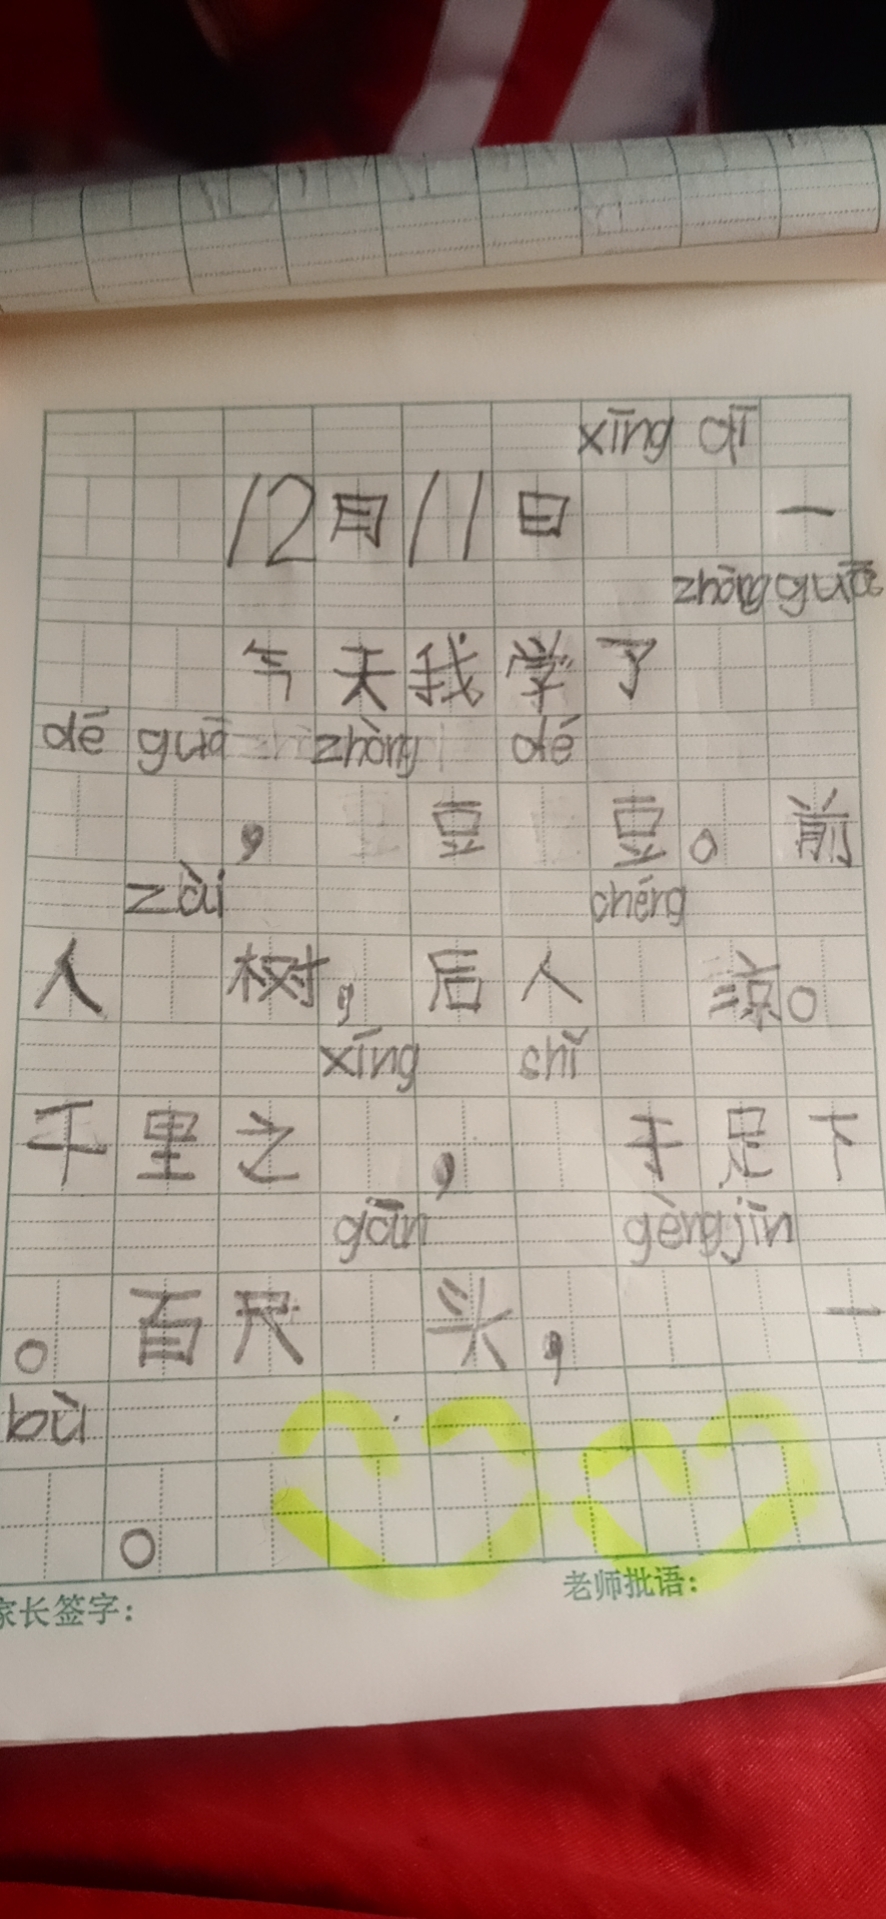 xīng qī
12月11日 一
zhòng guā
今天我学了
dé guā zhòng dé
， 豆 豆。前
zāi chéng
人 树，后人 凉。
xíng shǐ
千里之 ，于足下
gān gèng jìn
。百尺 头， 一
bù
。
家长签字：
老师批语：